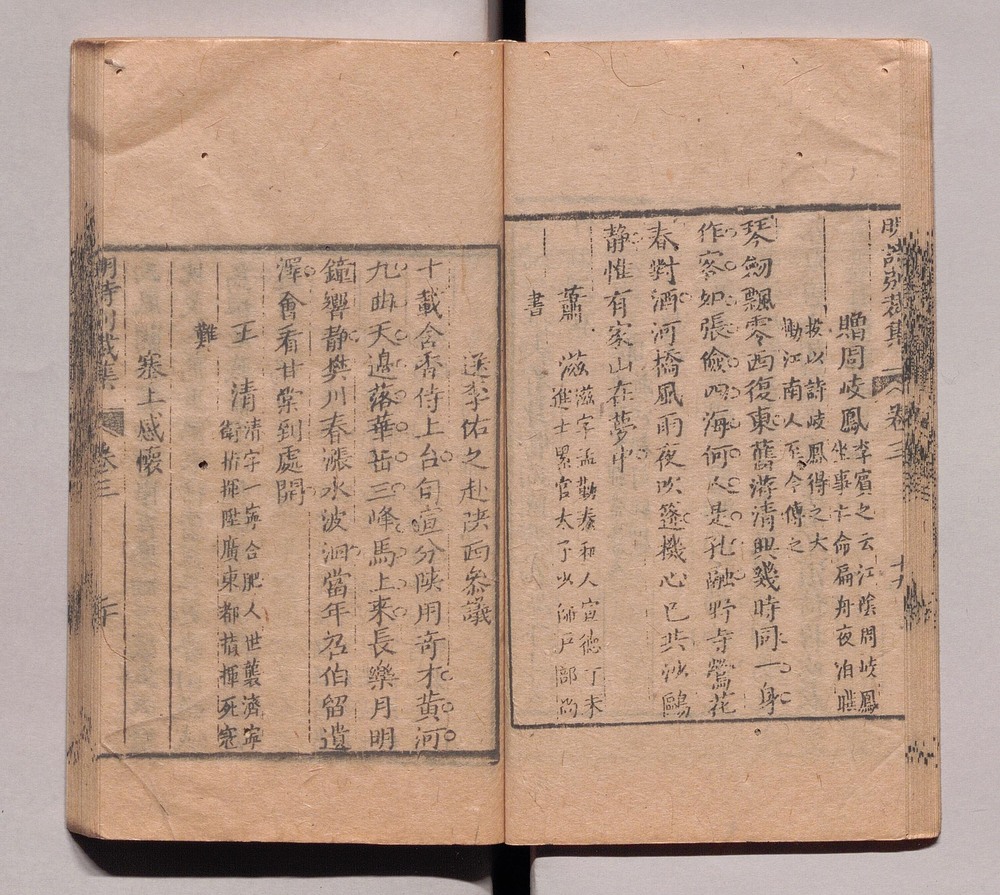 明詩別裁集 卷三
贈周岐鳳
李賓之云江陰周岐鳳
坐事亡命扁舟夜泊
投以詩岐鳳得之大
慟江南人至今傳之
琴劒飄零西復東舊游清興幾時同一身
作客如張儉四海何人是孔融野寺鶯花
春對酒河橋風雨夜吹篷機心已共沙鷗
静惟有家山在夢中
蕭 滋
滋字孟勤泰和人宣德丁未
進士累官太子少師戸部尚
書
送李佑之赴陕西叅議
十載含香侍上台旬宣分陕用奇才黄河
九曲天邉落華岳三峰馬上來長樂月明
鐘響静樊川春漲水波洄當年召伯留遺
澤會看甘棠到處開
王 清
清字一寧合肥人世襲濟寧
衛指揮陞廣東都指揮死寇
難
塞上感懷
明詩別裁集 卷三